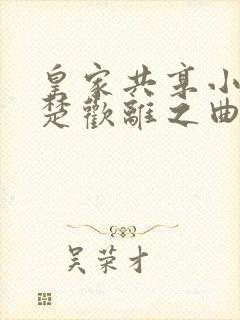 皇家共享小
楚歡離之曲
吴荣才